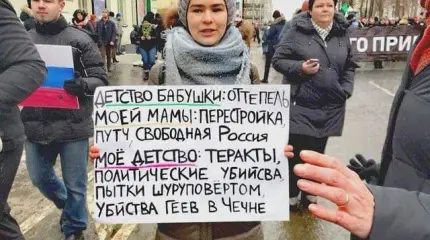 ГО ПРИ
ДЕТСТВО БАБУШКИ: ОТТЕПЕЛЬ
МОЕЙ МАМЫ: ПЕРЕСТРОЙКА,
ПУТЧ, СВОБОДНАЯ РОССИЯ
МОЁ ДЕТСТВО: ТЕРАКТЫ,
ПОЛИТИЧЕСКИЕ УБИЙСВА,
ПЫТКИ ШУРУПОВЁРТОМ,
УБИЙСТВА ГЕЕВ В ЧЕЧНЕ